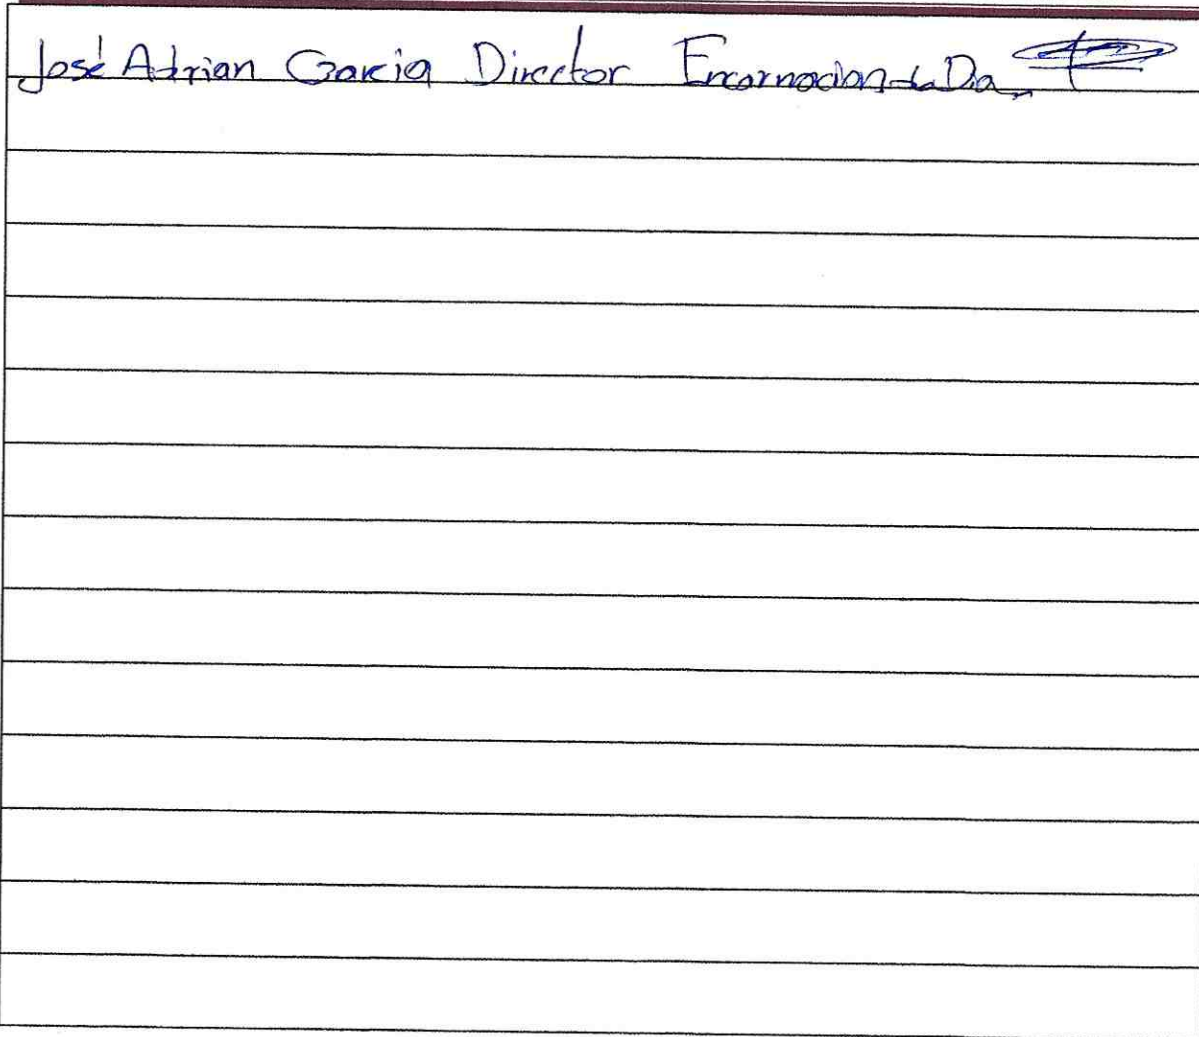 José Adrian Garcia Director Encarnacion de Diaz